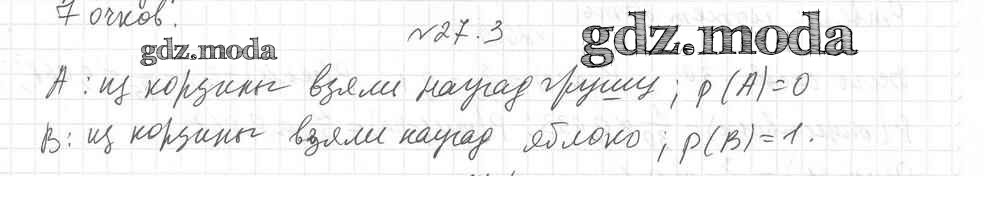 7 очков.
№27.3
gdz.moda
gdz.moda
A: из корзины взяли наугад грушу; p(A)=0
B: из корзины взяли наугад яблоко; p(B)=1.